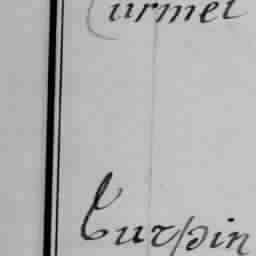 Curmel
Turpin